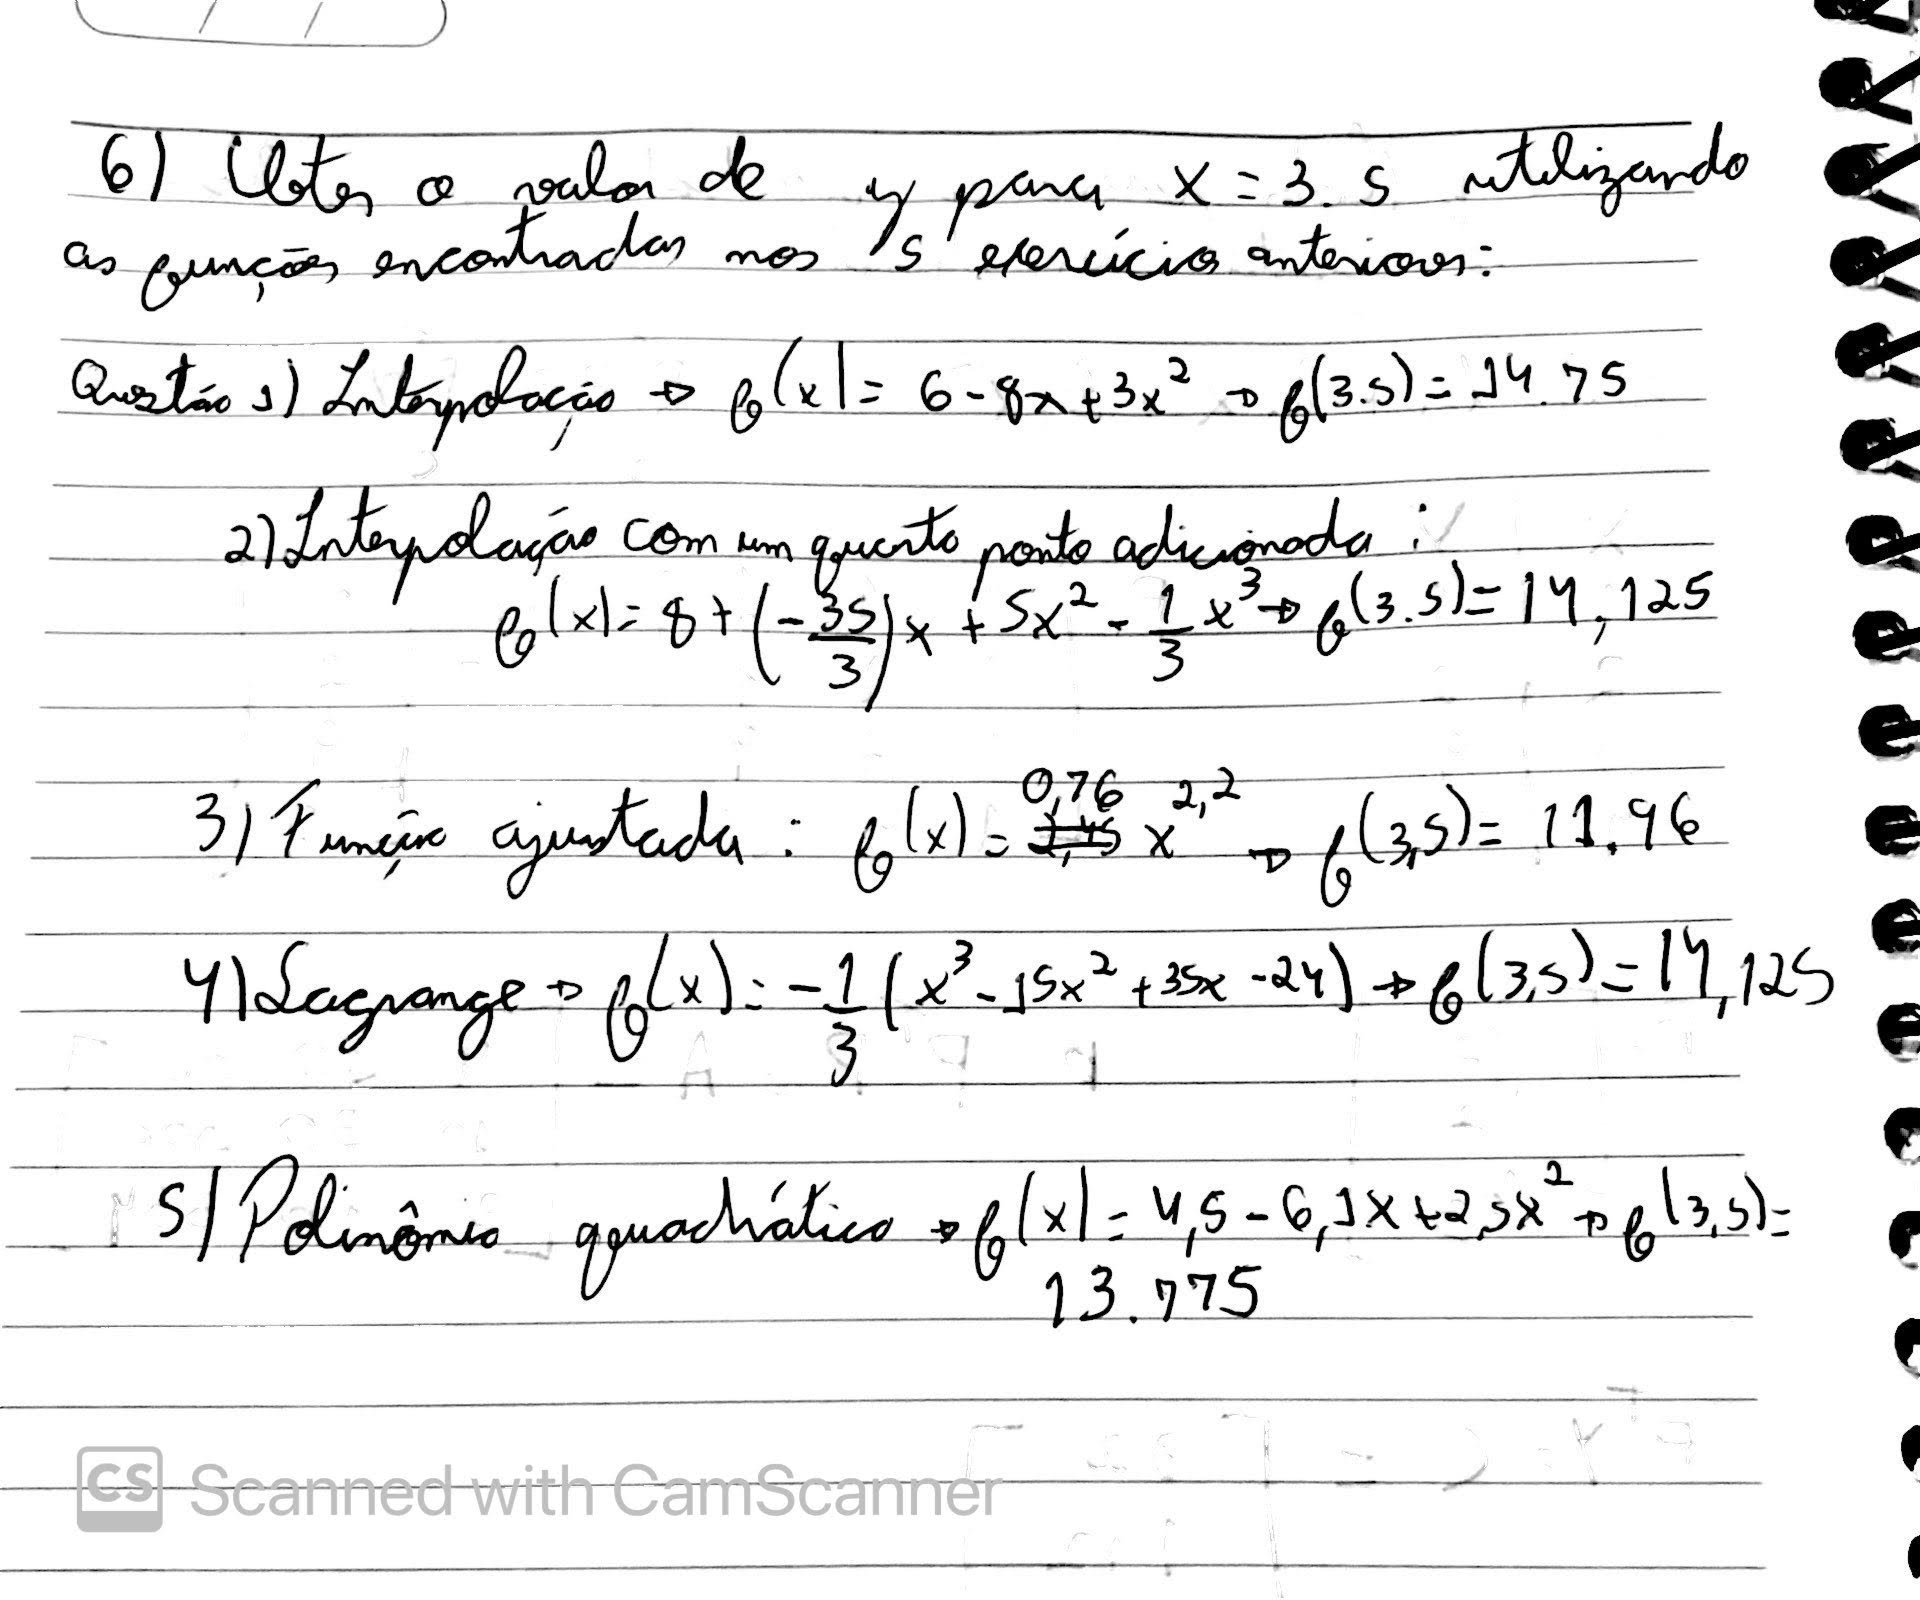 6) Obter o valor de y para x = 3.5 utilizando
as funções encontradas nos 5 exercício anteriores:
Questão 1) Interpolação → f(x) = 6 - 8x + 3x² → f(3.5) = 14.75
2) Interpolação com um quarto ponto adicionado:
f(x) = 8 + (-35/3)x + 5x² - 1/3 x³ → f(3.5) = 14,125
3) Função ajustada: f(x) = 0,76 x^2,2 → f(3,5) = 11.96
4) Lagrange → f(x) = -1/3 (x³ - 15x² + 35x - 24) → f(3,5) = 14,125
5) Polinômio quadrático → f(x) = 4,5 - 6,1x + 2,5x² → f(3,5) =
13.775
CS Scanned with CamScanner